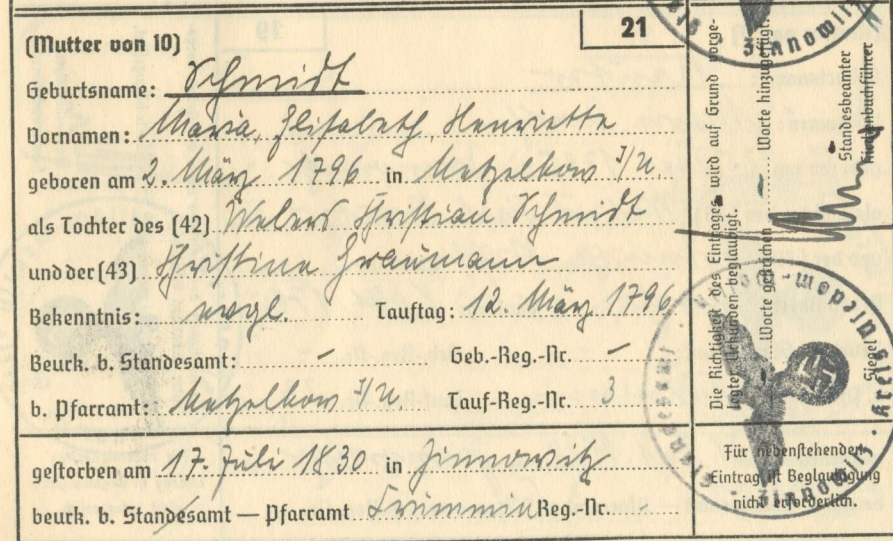 21
(Mutter von 10)
Geburtsname: Schmidt
Vornamen: Maria, Elisabeth, Henriette
geboren am 2. März 1796 in Metzelkow
als Tochter des (42) Webers Christian Schmidt
und der (43) Christina Graumann
Bekenntnis: evgl. Tauftag: 12. März 1796
Beurk. b. Standesamt: – Geb.-Reg.-Nr. –
b. Pfarramt: Metzelkow Tauf-Reg.-Nr. 3
gestorben am 17. Juli 1830 in Zinnowitz
beurk. b. Standesamt — Pfarramt Krummin Reg.-Nr.
Die Richtigkeit des Eintrages wird auf Grund vorge-
legter Urkunden beglaubigt.
Worte gestrichen Worte hinzugefügt.
Standesbeamter
Kirchenbuchführer
Siegel
Für nebenstehenden
Eintrag ist Beglaubigung
nicht erforderlich.
Zinnowitz
Standesamt Zinnowitz